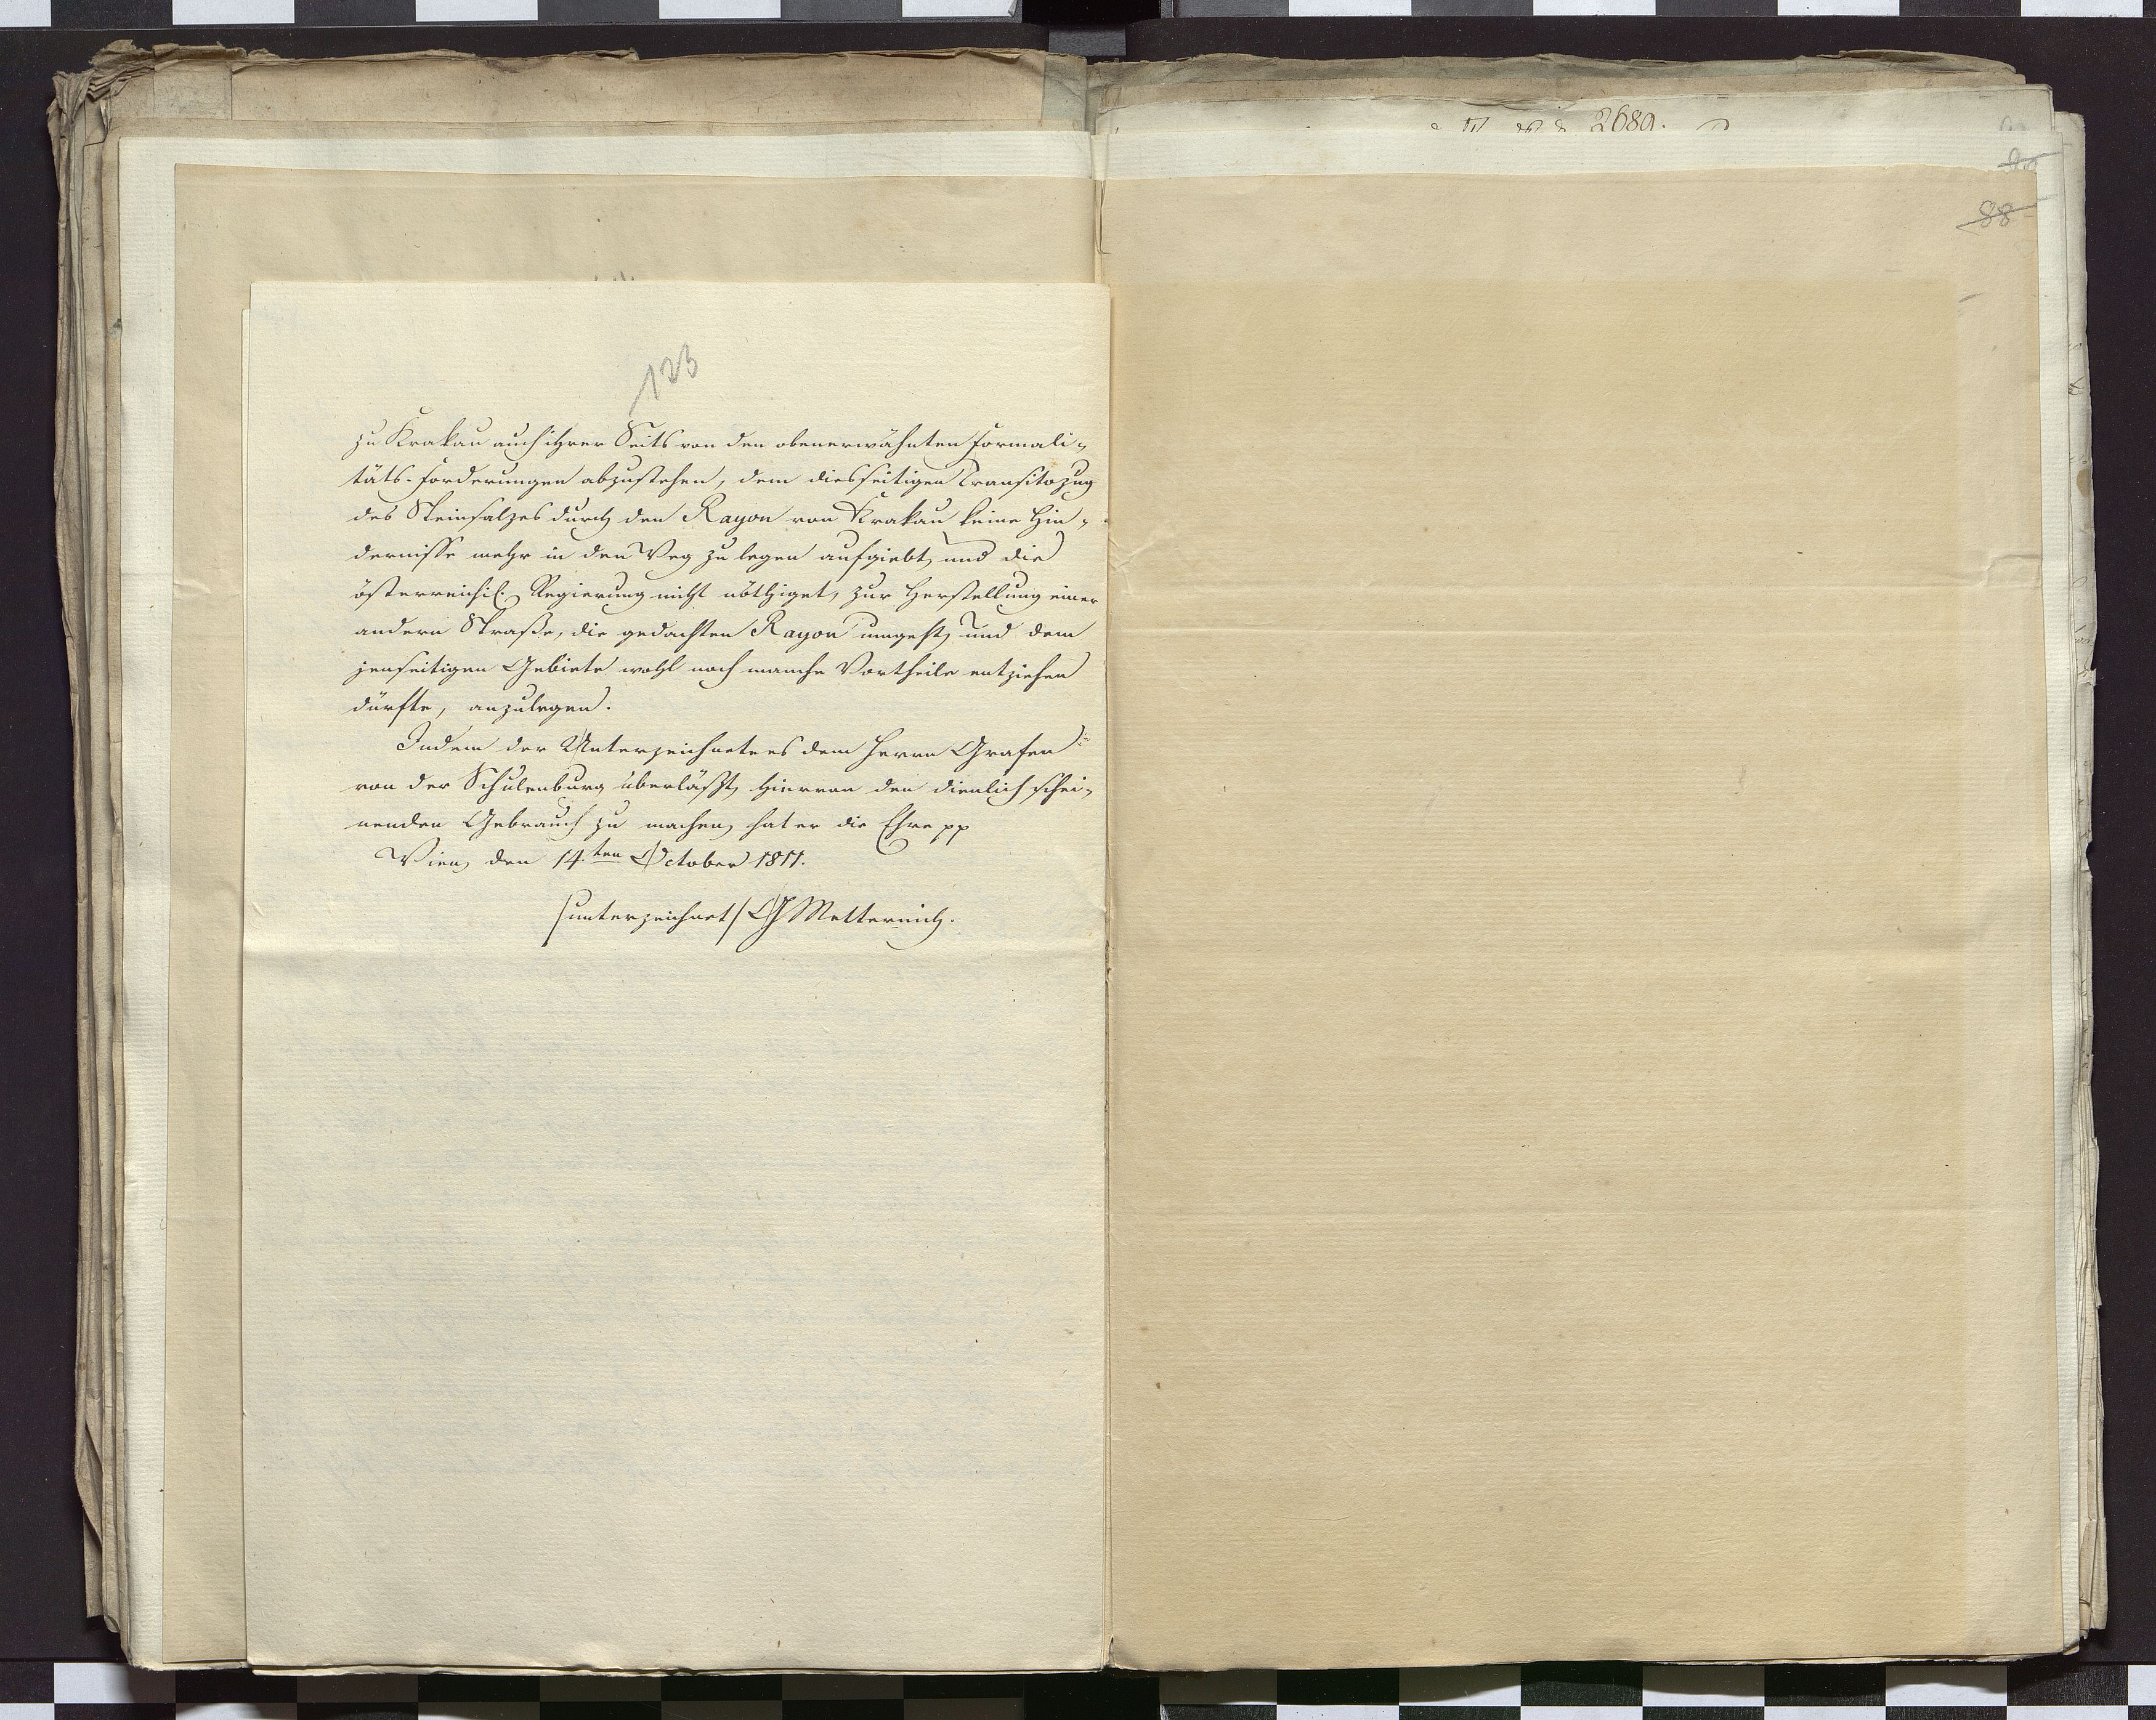 123
zu Krakau auch ihrer Seits von den obenerwähnten Formali-
täts-Forderungen abzustehen, dem diesseitigen Transitozug
des Steinsalzes durch den Rayon von Krakau keine Hin-
dernisse mehr in den Weg zu legen aufgiebt, und die
österreichisch. Regierung nicht nöthiget, zur Herstellung einer
andern Straße, die gedachten Rayon umgeht, und dem
jenseitigen Gebiete wohl noch manche Vortheile entziehen
dürfte, anzulegen.
Indem der Unterzeichnete es dem Herrn Grafen
von der Schulenburg überläßt, hievon den dienlich schei-
nenden Gebrauch zu machen, hat er die Ehre pp
Wien, den 14.ten October 1811.
/unterzeichnet/ G Metternich.
2680.
88